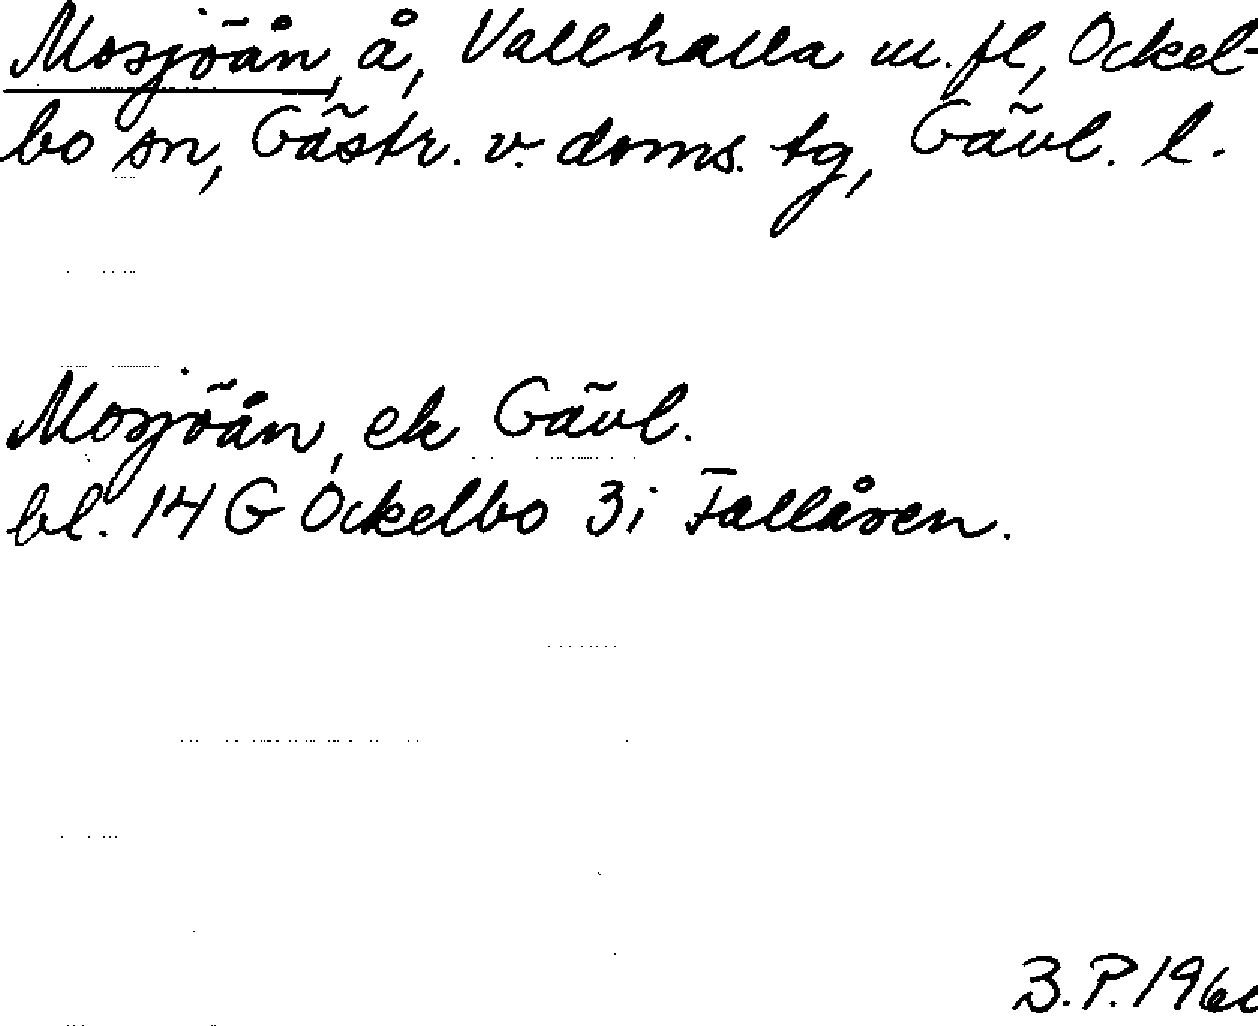 Mosjöån, å, Vallhalla m.fl, Ockel-
bo sn, Gästr. v. doms. tg, Gävl. l.
Mosjöån, ek Gävl.
bl. 14 G Ockelbo 3i Fallåsen.
B.P.